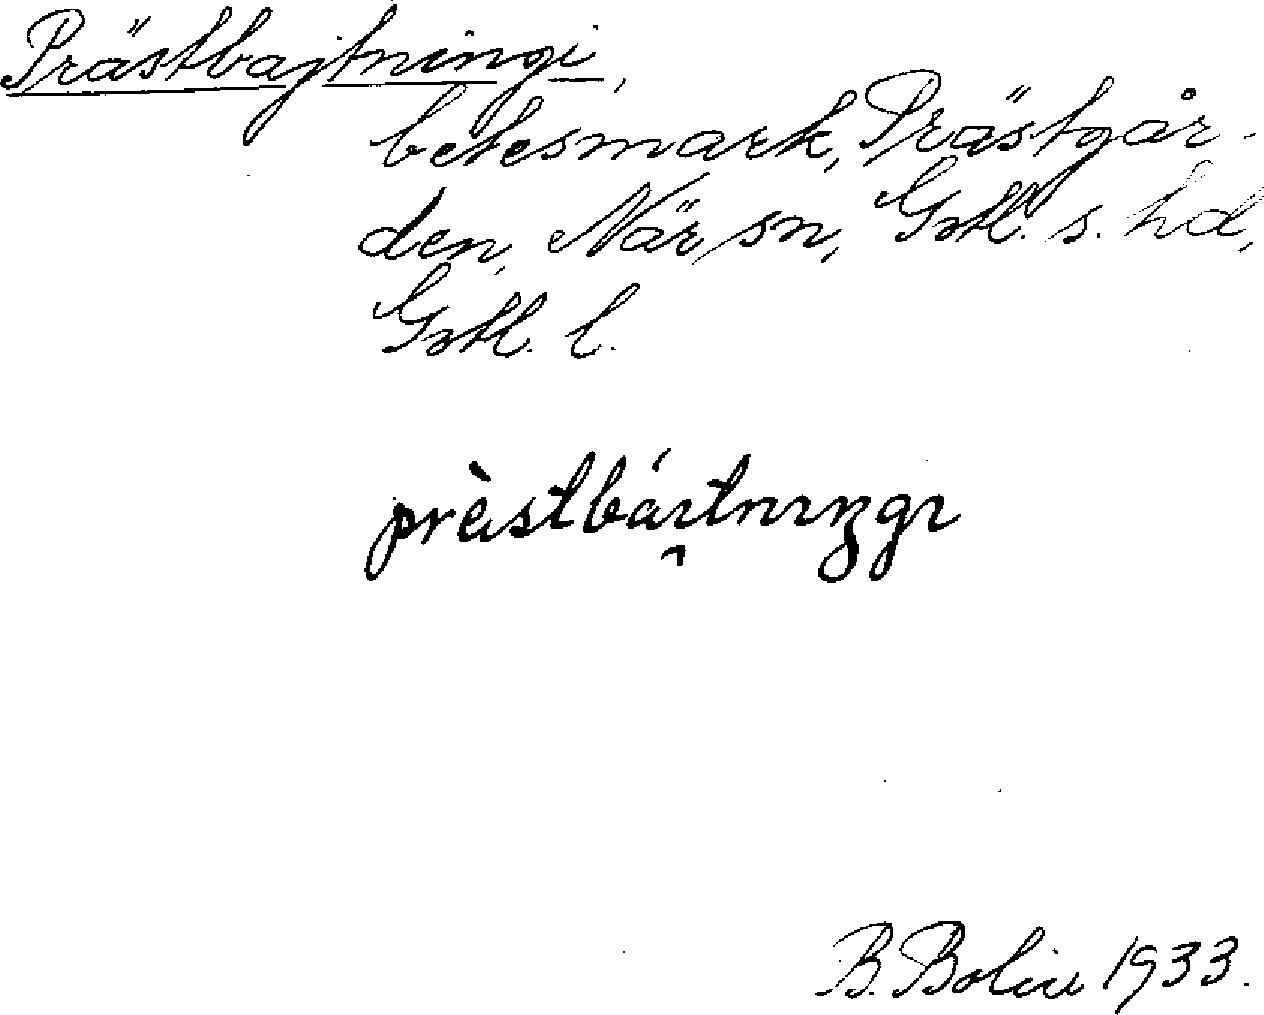 Prästbajtningi,
betesmark, Prästgår-
den, När sn, Gotl. s. hd,
Gotl. l.
prä̀stbáɪtnɪŋgɪ
B. Bolin 1933.